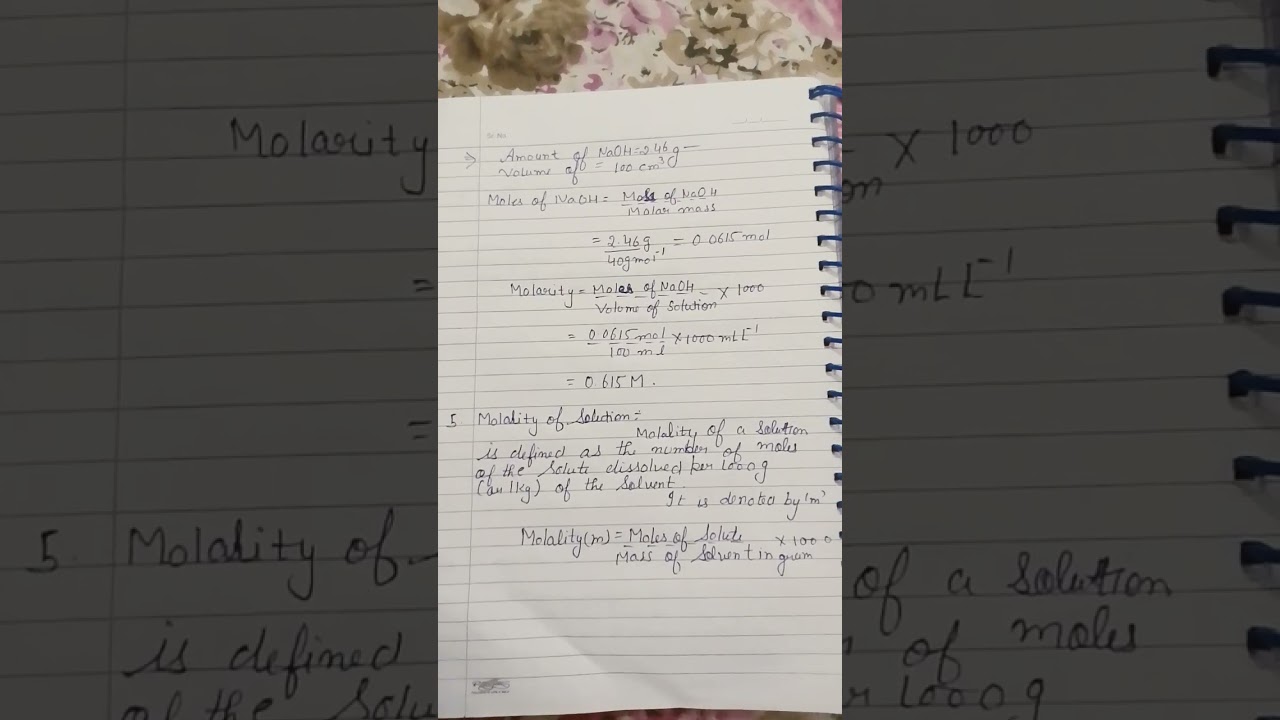 Sr. No.
Amount of NaOH = 2.46 g
Volume of = 100 cm³
Moles of NaOH = Mass of NaOH
Molar mass
= 2.46g = 0.0615 mol
40gmol⁻¹
Molarity = Moles of NaOH × 1000
Volume of Solution
= 0.0615 mol × 1000 mL L⁻¹
100 ml
= 0.615 M.
5 Molality of Solution :-
Molality of a solution
is defined as the number of moles
of the solute dissolved per 1000g
(or 1kg) of the solvent.
It is denoted by 'm'
Molality(m) = Moles of Solute × 1000
Mass of Solvent in gram